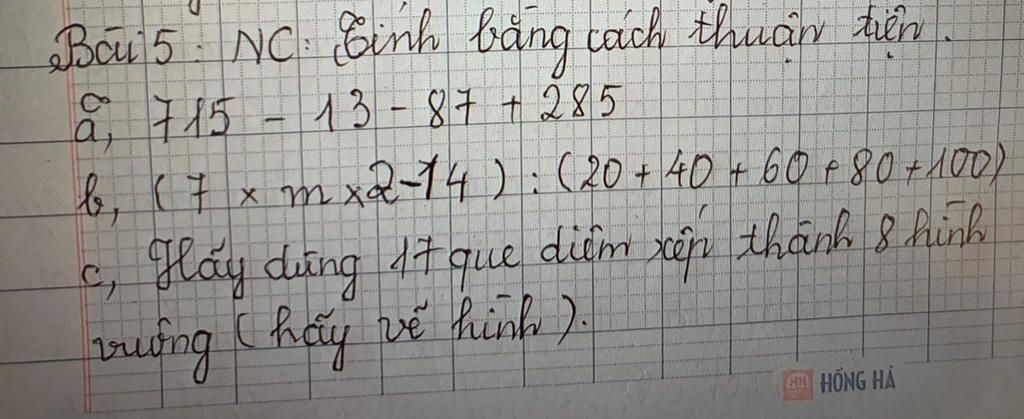 Bài 5: NC: Tính bằng cách thuận tiện.
a, 715 - 13 - 87 + 285
b, (7 x m x 2 - 14) : (20 + 40 + 60 + 80 + 100)
c, Hãy dùng 17 que diêm xếp thành 8 hình
vuông (hãy vẽ hình).
HH HỒNG HÀ